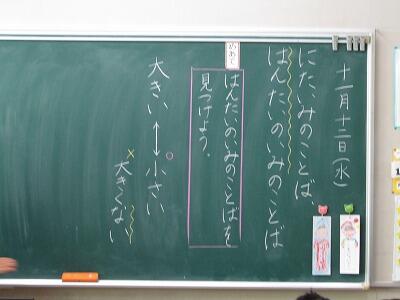 十一月十二日(水)
にたいみのことば
はんたいのいみのことば
めあて
はんたいのいみのことばを
見つけよう。
大きい ↔ 小さい
大きくない